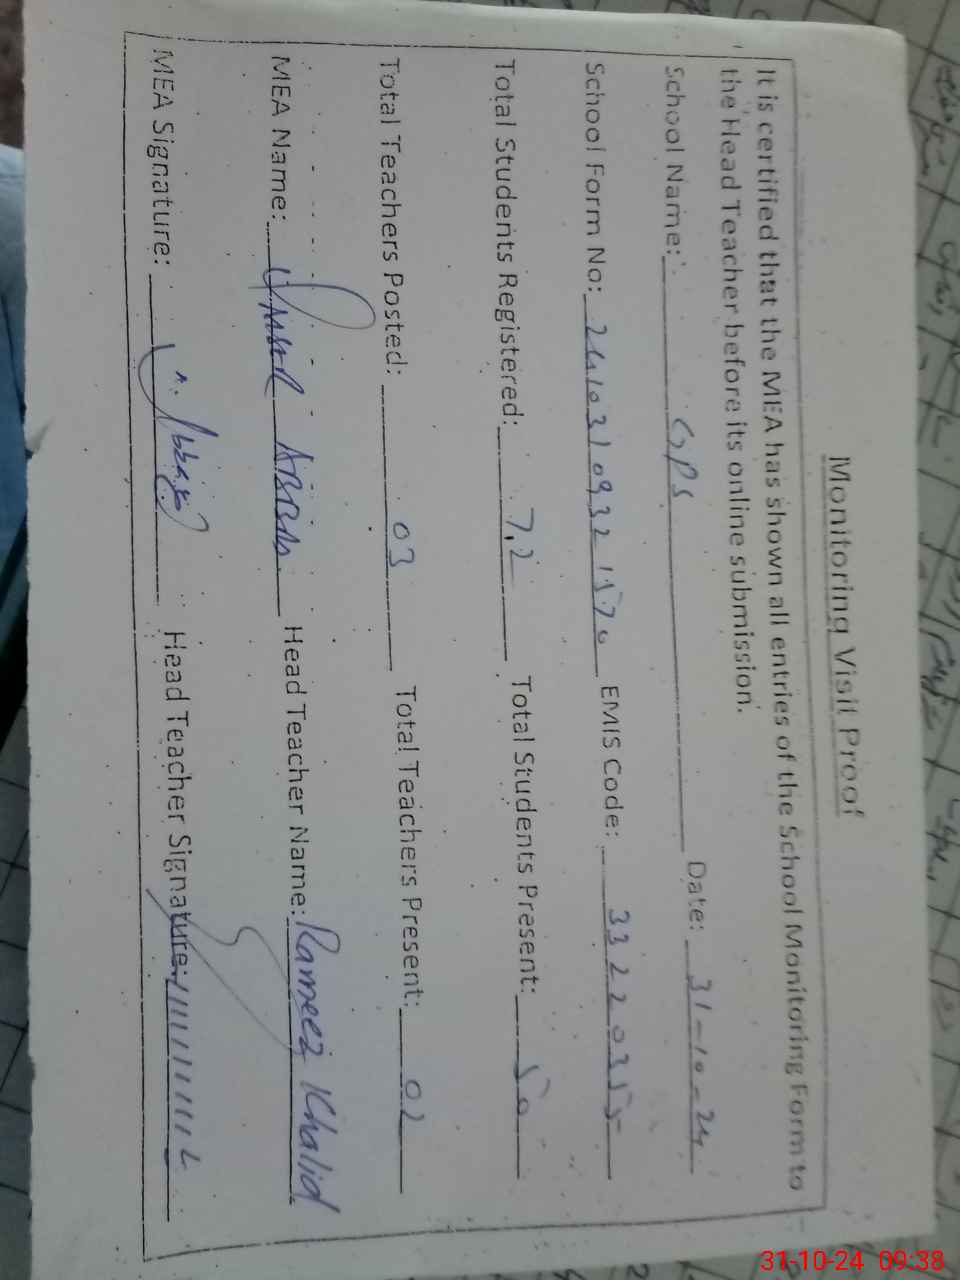 Monitoring Visit Proof
It is certified that the MEA has shown all entries of the School Monitoring Form to
the Head Teacher before its online submission.
School Name: GPS Date: 31-10-24
School Form No: 24103109321570 EMIS Code: 33220355
Total Students Registered: 72 Total Students Present: 50
Total Teachers Posted: 03 Total Teachers Present: 02
MEA Name: ABBAS Head Teacher Name: Rameez Khalid
MEA Signature: Abbas Head Teacher Signature:
31-10-24 09:38